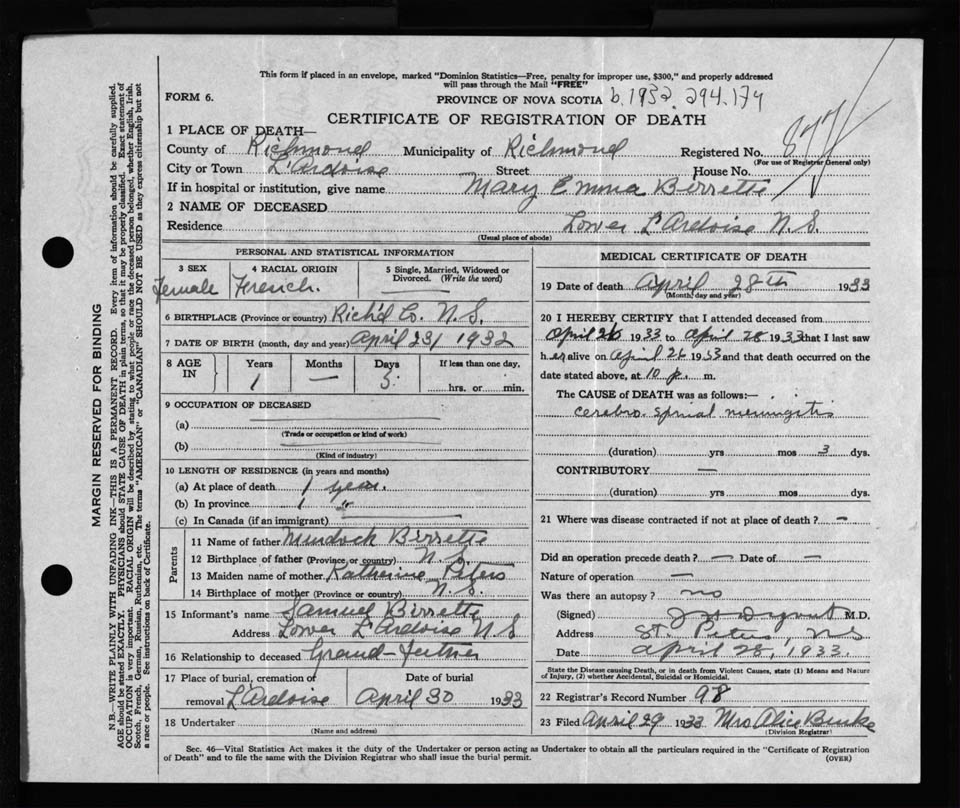 This form if placed in an envelope, marked "Dominion Statistics—Free, penalty for improper use, $300," and properly addressed
will pass through the Mail "FREE"
FORM 6.
PROVINCE OF NOVA SCOTIA b.1932. 294.174
CERTIFICATE OF REGISTRATION OF DEATH
1 PLACE OF DEATH—
County of Richmond Municipality of Richmond Registered No.
(For use of Registrar General only)
City or Town L'Ardoise Street House No.
If in hospital or institution, give name Mary Emma Berrette
2 NAME OF DECEASED
Residence Lower L'Ardoise N.S.
(Usual place of abode)
PERSONAL AND STATISTICAL INFORMATION
3 SEX 4 RACIAL ORIGIN 5 Single, Married, Widowed or Divorced. (Write the word)
Female French.
6 BIRTHPLACE (Province or country) Rich'd Co. N.S.
7 DATE OF BIRTH (month, day and year) April 23, 1932
8 AGE IN Years Months Days If less than one day,
1 — 5 hrs. or min.
9 OCCUPATION OF DECEASED
(a)
(Trade or occupation or kind of work)
(b)
(Kind of industry)
10 LENGTH OF RESIDENCE (in years and months)
(a) At place of death 1 year.
(b) In province 1 "
(c) In Canada (if an immigrant)
Parents
11 Name of father Murdock Berrette
12 Birthplace of father (Province or country) N.S.
13 Maiden name of mother Katherine Peters
14 Birthplace of mother (Province or country) N.S.
15 Informant's name Samuel Berrette
Address Lower L'Ardoise N S
16 Relationship to deceased Grand-father
17 Place of burial, cremation or removal Date of burial
L'Ardoise April 30 1933
18 Undertaker
(Name and address)
MEDICAL CERTIFICATE OF DEATH
19 Date of death April 28th 1933
(Month, day and year)
20 I HEREBY CERTIFY that I attended deceased from
April 26 1933 to April 28 1933 that I last saw
h er alive on April 26 1933 and that death occurred on the
date stated above, at 10 p. m.
The CAUSE of DEATH was as follows:—
cerebro. spinal meningitis
(duration) yrs mos 3 dys.
CONTRIBUTORY —
(duration) yrs mos dys.
21 Where was disease contracted if not at place of death? —
Did an operation precede death? — Date of —
Nature of operation —
Was there an autopsy? no
(Signed) M.D.
Address St. Peters, N S
Date April 28, 1933.
State the Disease causing Death, or in death from Violent Causes, state (1) Means and Nature
of Injury, (2) whether Accidental, Suicidal or Homicidal.
22 Registrar's Record Number 98
23 Filed April 29 1933 Mrs Alice Burke
(Division Registrar)
Sec. 46—Vital Statistics Act makes it the duty of the Undertaker or person acting as Undertaker to obtain all the particulars required in the "Certificate of Registration
of Death" and to file the same with the Division Registrar who shall issue the burial permit. (OVER)
MARGIN RESERVED FOR BINDING
N.B.—WRITE PLAINLY WITH UNFADING INK—THIS IS A PERMANENT RECORD. Every item of information should be carefully supplied.
AGE should be stated EXACTLY. PHYSICIANS should STATE CAUSE OF DEATH in plain terms, so that it may be properly classified. Exact statement of
OCCUPATION is very important. RACIAL ORIGIN will be described by stating to what people or race the deceased person belonged, whether English, Irish,
Scotch, French, German, Russian, Ruthenian, etc. The terms "AMERICAN" or "CANADIAN" SHOULD NOT BE USED as they express citizenship but not
a race or people. See instructions on back of Certificate.